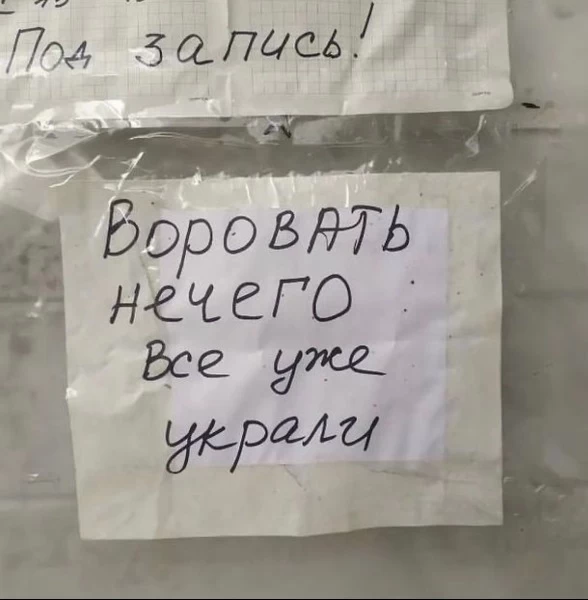 Под запись!
Воровать
нечего
Все уже
украли